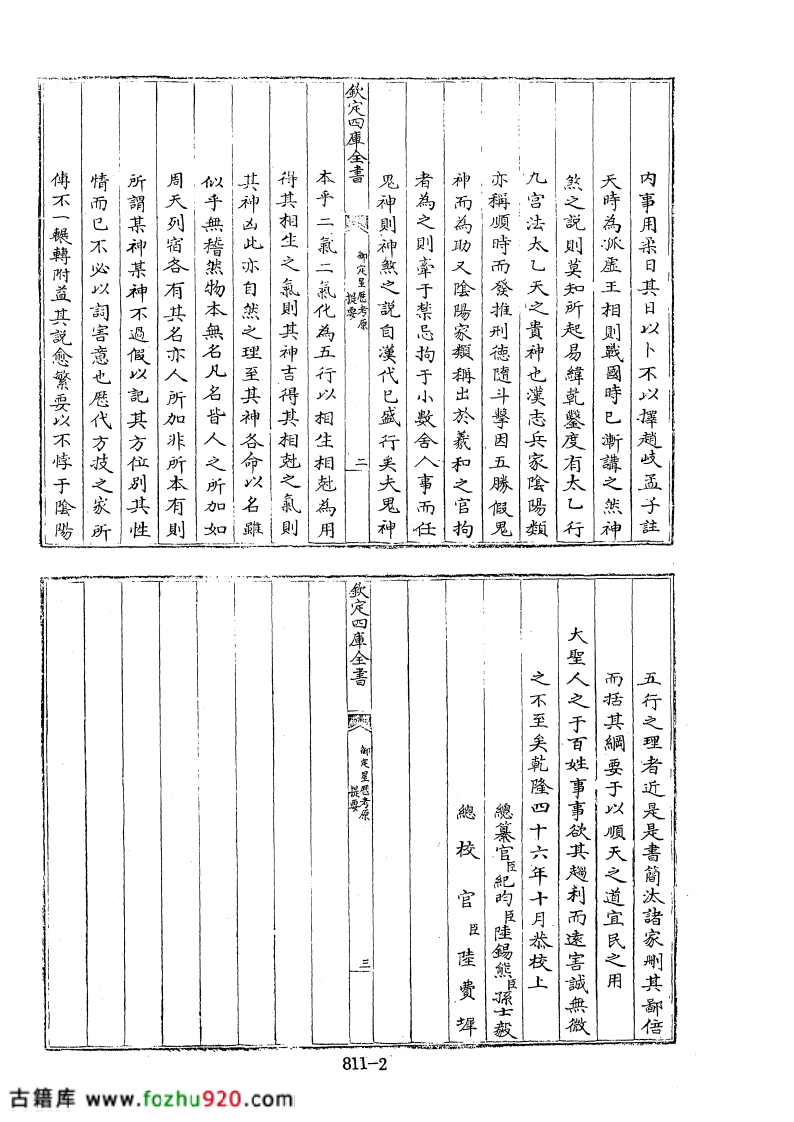 内事用柔日其日以卜不以擇趙岐孟子註
天時為孤虛王相則戰國時已漸講之然神
煞之説則莫知所起易緯乾鑿度有太乙行
九宮法太乙天之貴神也漢志兵家陰陽類
亦稱順時而發推刑徳隨斗擊因五勝假鬼
神而為助又陰陽家類稱出於羲和之官拘
者為之則牽于禁忌拘于小數舍人事而任
鬼神則神煞之説自漢代已盛行矣夫鬼神
欽定四庫全書
御定星厯考原
提要
二
本乎二氣二氣化為五行以相生相尅為用
得其相生之氣則其神吉得其相尅之氣則
其神凶此亦自然之理至其神各命以名雖
似乎無稽然物本無名凡名皆人之所加如
周天列宿各有其名亦人所加非所本有則
所謂某神某神不過假以記其方位别其性
情而已不必以詞害意也厯代方技之家所
傳不一輾轉附益其説愈繁要以不悖于陰陽
五行之理者近是是書簡汰諸家刪其鄙倍
而括其綱要于以順天之道宜民之用
大聖人之于百姓事事欲其趨利而逺害誠無微
之不至矣乾隆四十六年十月恭校上
總纂官臣紀昀臣陸錫熊臣孫士毅
總校官臣陸費墀
欽定四庫全書
御定星厯考原
提要
三
811-2
古籍库 www.fozhu920.com